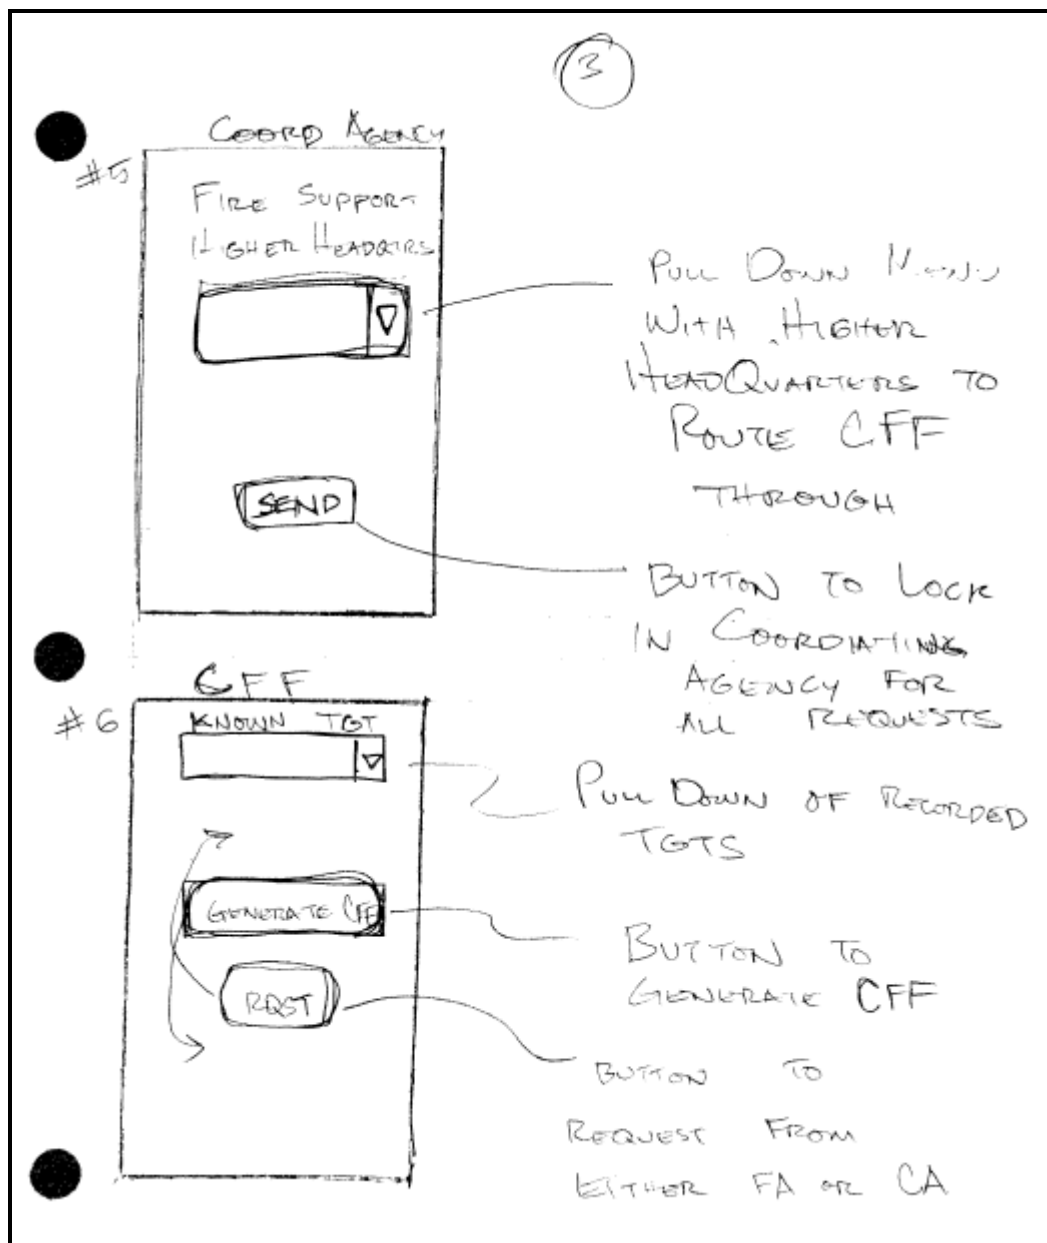 3
COORD AGENCY
#5
FIRE SUPPORT
HIGHER HEADQTRS
PULL DOWN MENU
WITH HIGHER
HEADQUARTERS TO
ROUTE CFF
THROUGH
SEND
BUTTON TO LOCK
IN COORDIATING
AGENCY FOR
ALL REQUESTS
CFF
#6
KNOWN TGT
PULL DOWN OF RECORDED
TGTS
GENERATE CFF
BUTTON TO
GENERATE CFF
RQST
BUTTON TO
REQUEST FROM
EITHER FA OR CA